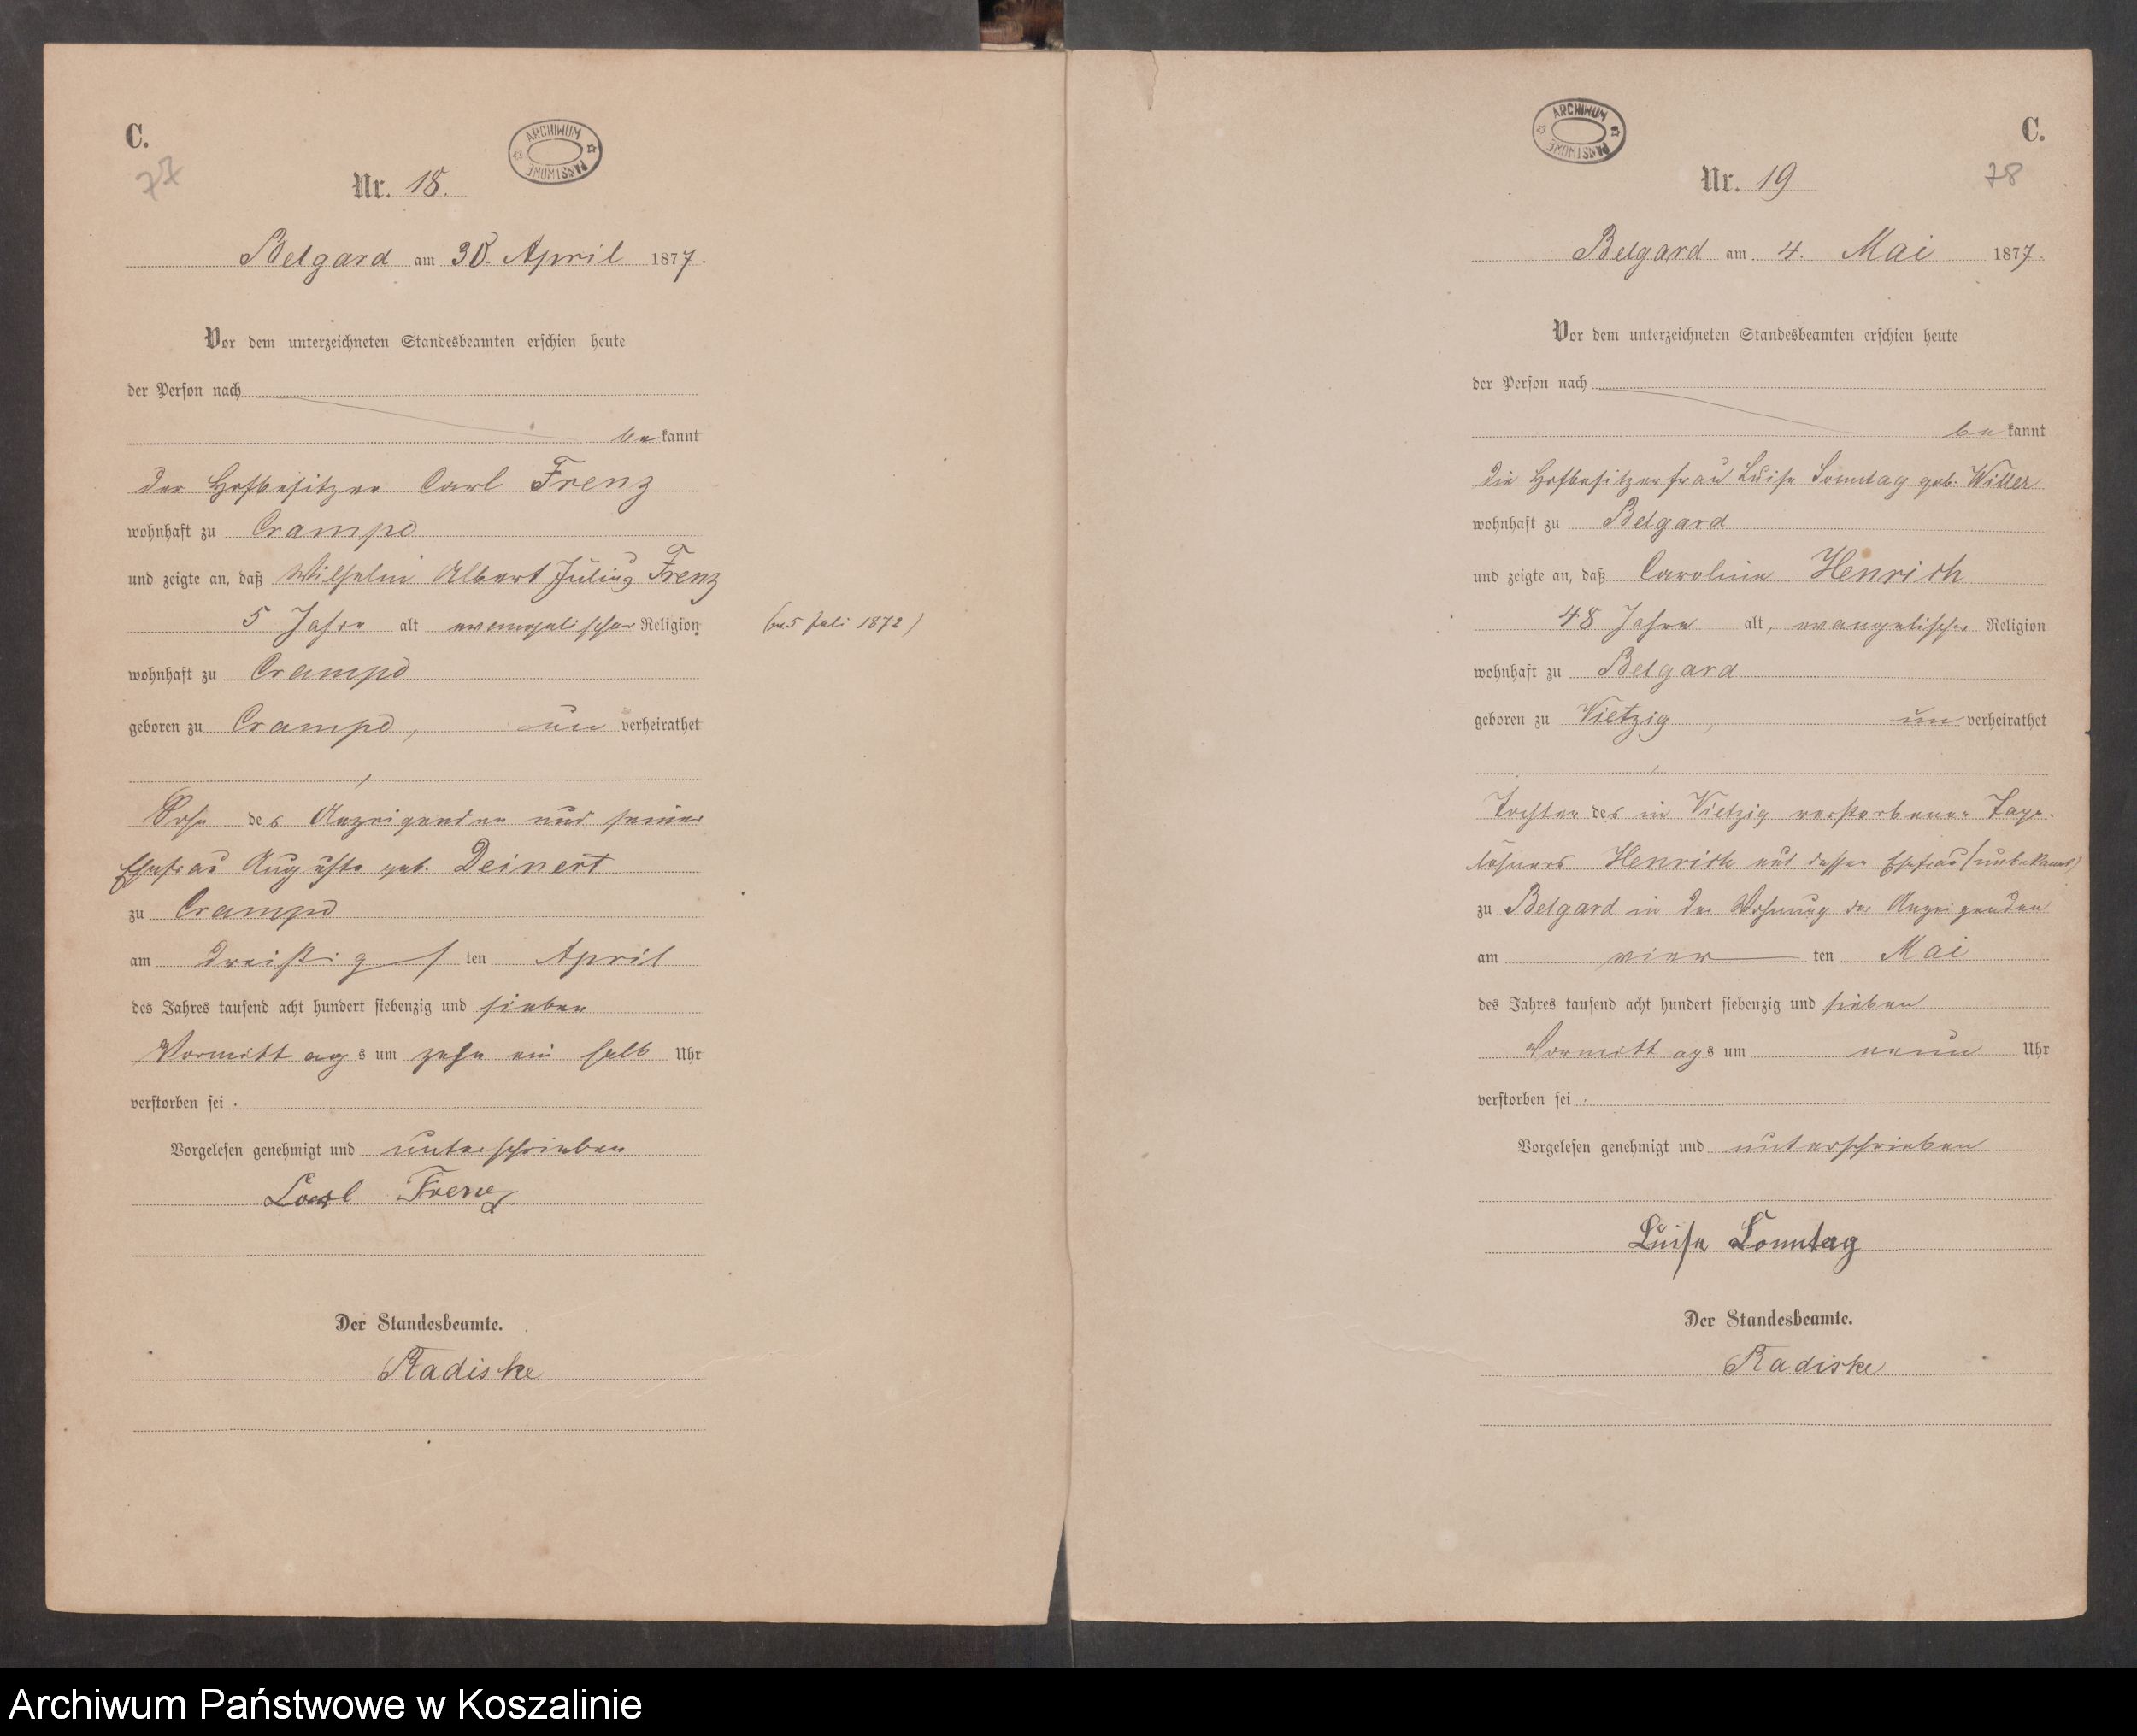 C.
77
ARCHIWUM PAŃSTWOWE
Nr. 18.
Belgard am 30. April 1877.
Vor dem unterzeichneten Standesbeamten erschien heute
der Person nach
bekannt
der Hofbesitzer Carl Frenz
wohnhaft zu Crampe
und zeigte an, daß Wilhelm Albert Julius Frenz
5 Jahre alt evangelischer Religion
5 Juli 1872)
wohnhaft zu Crampe
geboren zu Crampe, un verheirathet
Sohn des Anzeigenden und seiner
Ehefrau Auguste geb. Deinert
zu Crampe
am dreißigs ten April
des Jahres tausend acht hundert siebenzig und sieben
Vormittags um zehn ein halb Uhr
verstorben sei.
Vorgelesen genehmigt und unterschrieben
Carl Frenz.
Der Standesbeamte.
Radiske
ARCHIWUM PAŃSTWOWE
C.
78
Nr. 19.
Belgard am 4. Mai 1877.
Vor dem unterzeichneten Standesbeamten erschien heute
der Person nach
bekannt
die Hofbesitzerfrau Luise Sonntag geb. Willer
wohnhaft zu Belgard
und zeigte an, daß Caroline Henrich
48 Jahre alt, evangelischer Religion
wohnhaft zu Belgard
geboren zu Vietzig, un verheirathet
Tochter des in Vietzig verstorbenen Tage-
löhners Henrich und dessen Ehefrau (unbekannt)
zu Belgard in der Wohnung der Anzeigenden
am vier ten Mai
des Jahres tausend acht hundert siebenzig und sieben
Vormittags um neun Uhr
verstorben sei.
Vorgelesen genehmigt und unterschrieben
Luise Sonntag
Der Standesbeamte.
Radiske
Archiwum Państwowe w Koszalinie